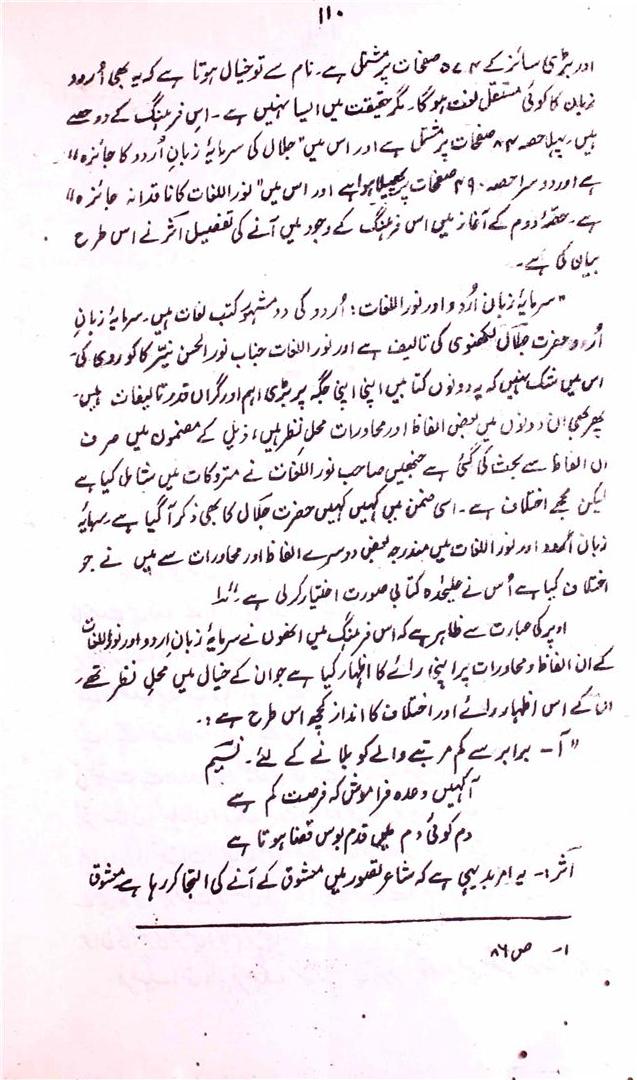 ۱۱۰
اور بڑی سائز کے ۵۷۴ صفحات پر مشتمل ہے۔ نام سے تو خیال ہوتا ہے کہ یہ بھی اُردو
زبان کا کوئی مستقل لغت ہوگا۔ مگر حقیقت میں ایسا نہیں ہے۔ اس فرہنگ کے دو حصے
ہیں۔ پہلا حصہ ۸۴ صفحات پر مشتمل ہے اور اس میں "جلال کی سرمایۂ زبانِ اُردو کا جائزہ"
ہے اور دوسرا حصہ ۴۹۰ صفحات پر پھیلا ہوا ہے اور اس میں "نور اللغات کا ناقدانہ جائزہ"
ہے۔ حصّۂ دوم کے آغاز میں اس فرہنگ کے وجود میں آنے کی تفصیل اثر نے اس طرح
بیان کی ہے۔
"سرمایۂ زبان اُردو اور نور اللغات؛ اُردو کی دو مشہور کتب لغات ہیں۔ سرمایۂ زبانِ
اُردو حضرت جلال لکھنوی کی تالیف ہے اور نور اللغات جناب نور الحسن نیّر کاکوروی کی۔
اس میں شک نہیں کہ یہ دونوں کتابیں اپنی اپنی جگہ پر بڑی اہم اور گراں قدر تالیفات ہیں۔
پھر بھی ان دونوں میں بعض الفاظ اور محاورات محلِ نظر ہیں، ذیل کے مضمون میں صرف
ان الفاظ سے بحث کی گئی ہے جنھیں صاحب نور اللغات نے متروکات میں شامل کیا ہے
لیکن مجھے اختلاف ہے۔ اسی ضمن میں کہیں کہیں حضرت جلال کا بھی ذکر آگیا ہے۔ سرمایۂ
زبان اُردو اور نور اللغات میں مندرجہ بعض دوسرے الفاظ اور محاورات سے میں نے جو
اختلاف کیا ہے اُس نے علیحدہ کتابی صورت اختیار کرلی ہے۔"۱
اوپر کی عبارت سے ظاہر ہے کہ اس فرہنگ میں انھوں نے سرمایۂ زبان اردو اور نور اللغات
کے ان الفاظ و محاورات پر اپنی رائے کا اظہار کیا ہے جو ان کے خیال میں محلِ نظر تھے۔
ان کے اس اظہارِ رائے اور اختلاف کا انداز کچھ اس طرح ہے:۔
"آ۔ برابر سے کم مرتبے والے کو بلانے کے لئے۔ نسیم
آ کہیں وعدہ فراموش کہ فرصت کم ہے
دم کوئی دم میں قدم بوسِ قضا ہوتا ہے
اثر:۔ یہ امر بدیہی ہے کہ شاعر تصور میں معشوق کے آنے کی التجا کر رہا ہے معشوق
۱۔ ص ۸۶